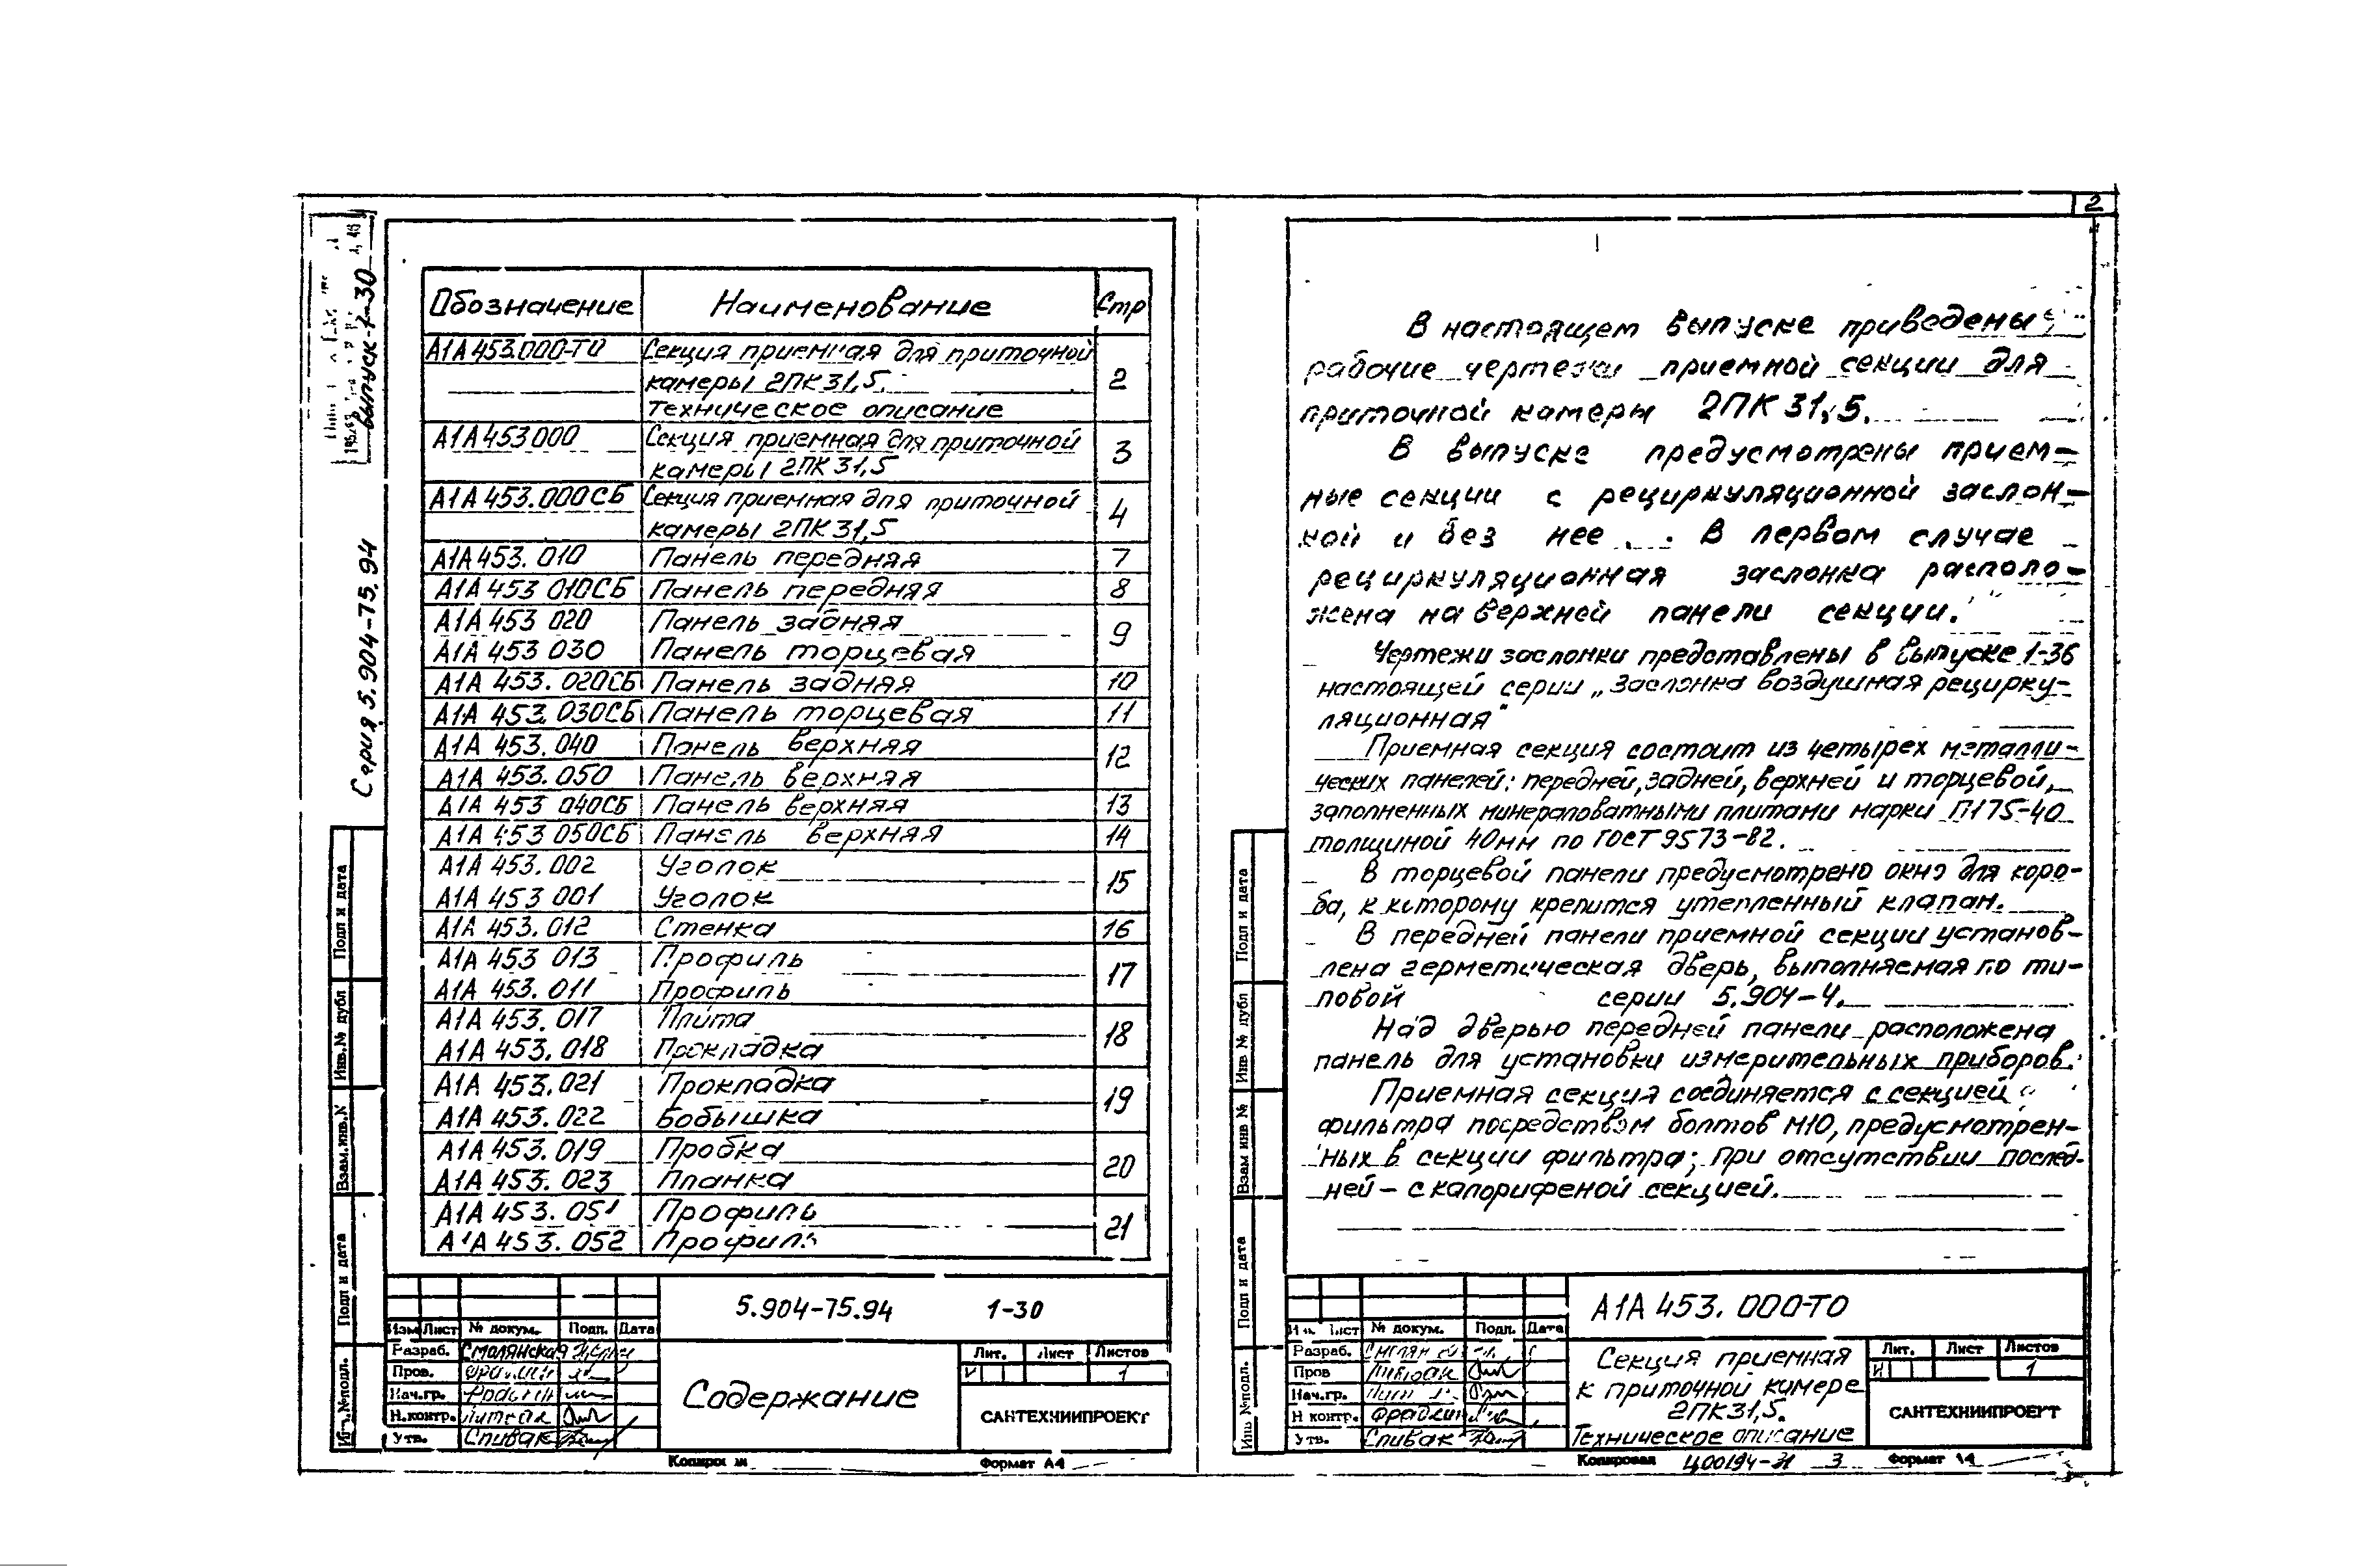 Серия 5.904-75.94
выпуск 1-30
Обозначение Наименование Стр
А1А 453.000-ТО Секция приемная для приточной
камеры 2ПК 31,5. 2
техническое описание
А1А 453 000 Секция приемная для приточной 3
камеры 2ПК 31,5
А1А 453.000СБ Секция приемная для приточной 4
камеры 2ПК 31,5
А1А 453.010 Панель передняя 7
А1А 453 010СБ Панель передняя 8
А1А 453 020 Панель задняя 9
А1А 453 030 Панель торцевая
А1А 453.020СБ Панель задняя 10
А1А 453.030СБ Панель торцевая 11
А1А 453.040 Панель верхняя 12
А1А 453.050 Панель верхняя
А1А 453 040СБ Панель верхняя 13
А1А 453 050СБ Панель верхняя 14
А1А 453.002 Уголок 15
А1А 453 001 Уголок
А1А 453.012 Стенка 16
А1А 453 013 Профиль 17
А1А 453.011 Профиль
А1А 453.017 Плита 18
А1А 453.018 Прокладка
А1А 453.021 Прокладка 19
А1А 453.022 Бобышка
А1А 453.019 Пробка 20
А1А 453.023 Планка
А1А 453.051 Профиль 21
А1А 453.052 Профиль
Подп и дата
Инв.№ дубл
Взам.инв.№
Подп и дата
Инв.№подл.
5.904-75.94 1-30
Изм Лист № докум. Подп. Дата
Разраб. Смолянская
Пров.
Нач.гр.
Н.контр. Литвак
Утв. Спивак
Содержание
Лит. Лист Листов
И 1
САНТЕХНИИПРОЕКТ
Формат А4
2
В настоящем выпуске приведены
рабочие чертежи приемной секции для
приточной камеры 2ПК 31,5.
В выпуске предусмотрены прием-
ные секции с рециркуляционной заслон-
кой и без нее. В первом случае
рециркуляционная заслонка располо-
жена на верхней панели секции.
Чертежи заслонки представлены в выпуске 1-36
настоящей серии „Заслонка воздушная рецирку-
ляционная"
Приемная секция состоит из четырех металли-
ческих панелей: передней, задней, верхней и торцевой,
заполненных минераловатными плитами марки П175-40
толщиной 40мм по ГОСТ 9573-82.
В торцевой панели предусмотрено окно для коро-
ба, к которому крепится утепленный клапан.
В передней панели приемной секции установ-
лена герметическая дверь, выполняемая по ти-
повой серии 5.904-4.
Над дверью передней панели расположена
панель для установки измерительных приборов.
Приемная секция соединяется с секцией
фильтра посредством болтов М10, предусмотрен-
ных в секции фильтра; при отсутствии послед-
ней – с калориферной секцией.
Подп и дата
Инв № дубл
Взам инв №
Подп и дата
Инв №подл.
А1А 453.000-ТО
Лист № докум. Подп. Дата
Разраб.
Пров
Нач.гр.
Н контр. Фрадкин
Утв. Спивак
Секция приемная
к приточной камере
2ПК31,5.
Техническое описание
Лит. Лист Листов
И 1
САНТЕХНИИПРОЕКТ
Копировал Ц00194-31 3 Формат А4